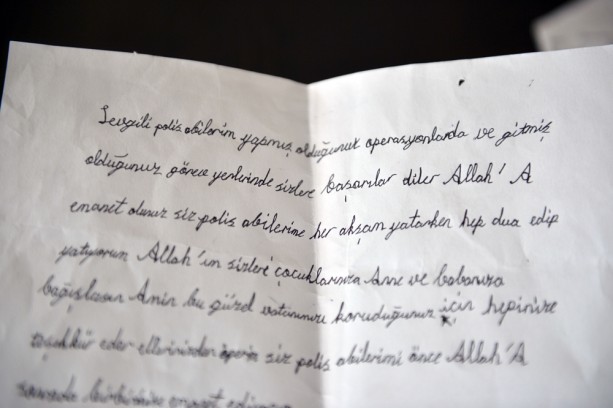 Sevgili polis abilerim yapmış olduğunuz operasyonlarda ve gitmiş
olduğunuz görev yerlerinde sizlere başarılar diler Allah' A
emanet olunuz siz polis abilerime her akşam yatarken hep dua edip
yatıyorum Allah'ım sizleri çocuklarınıza Anne ve babanıza
bağışlasın Amin bu güzel vatanımızı koruduğunuz için hepinize
teşekkür eder ellerinizden öperim siz polis abilerimi önce Allah'A
sonrada birbirinize emanet ediyorum